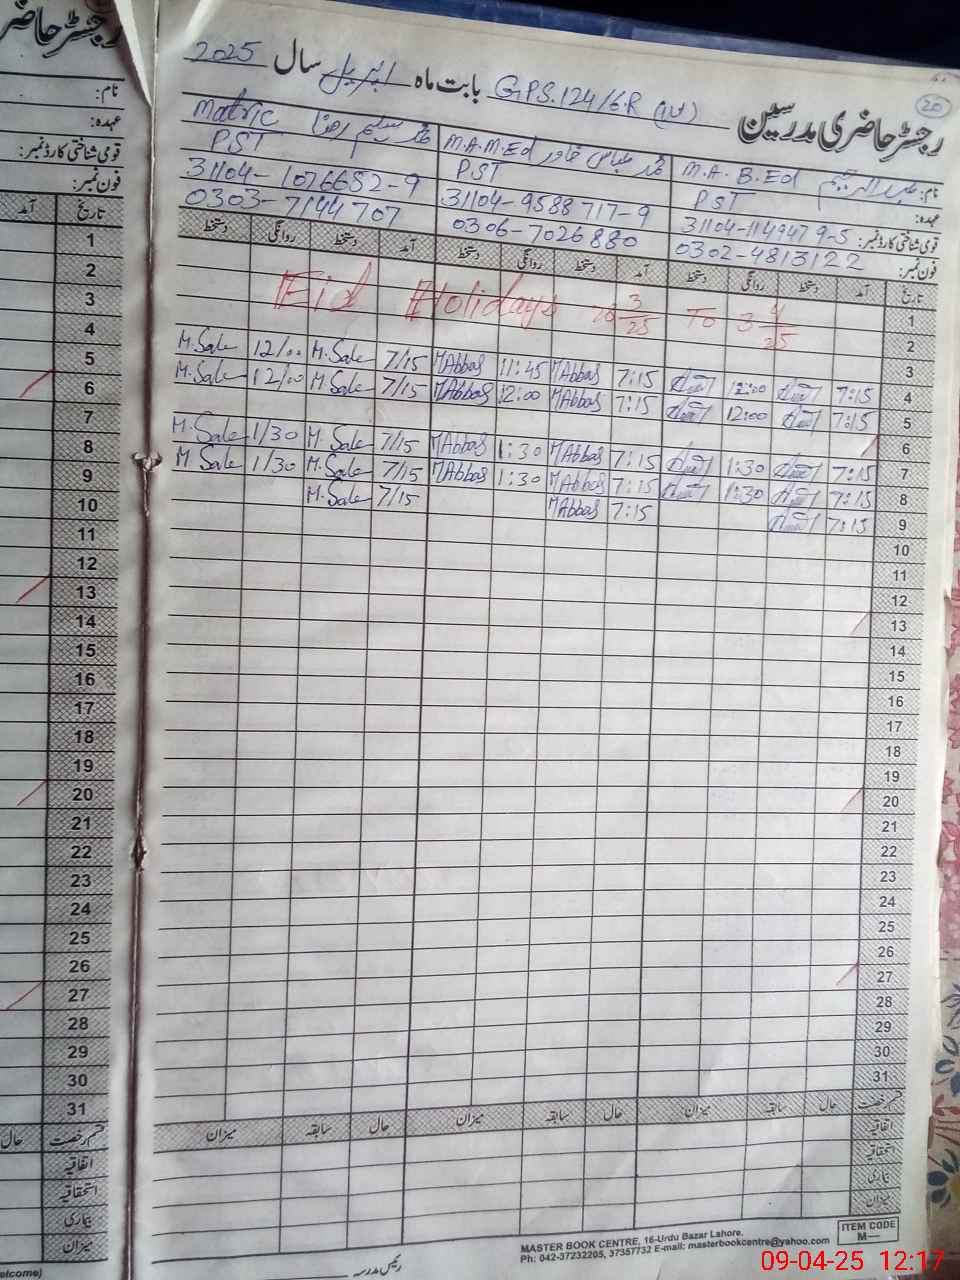 رجسٹر حاضری مدرسین G.P.S. 124/6.R بابت ماہ اپریل سال 2025
20
نام: M.A. B.Ed
عہدہ: PST
قومی شناختی کارڈ نمبر: 31104-1149479-5
فون نمبر: 0302-4813122
محمد عباس خاور M.A.M.Ed
PST
31104-9588717-9
0306-7026880
Matric
PST
31104-1076652-9
0303-7144707
تاریخ آمد دستخط روانگی دستخط آمد دستخط روانگی دستخط آمد دستخط روانگی دستخط
Eid Holidays 3/25 To 3 4/25
1
2
3
4 7:15 12:00 7:15 MAbbas 11:45 MAbbas 7/15 M.Sale 12/00 M.Sale
5 7:15 12:00 7:15 MAbbas 12:00 MAbbas 7/15 M.Sale 12/00 M.Sale
6
7 7:15 1:30 7:15 MAbbas 1:30 MAbbas 7/15 M.Sale 1/30 M.Sale
8 7:15 1:30 7:15 MAbbas 1:30 MAbbas 7/15 M.Sale 1/30 M.Sale
9 7:15 7:15 MAbbas 7/15 M.Sale
10
11
12
13
14
15
16
17
18
19
20
21
22
23
24
25
26
27
28
29
30
31
قسم رخصت حال سابقہ میزان حال سابقہ میزان حال سابقہ میزان
اتفاقیہ
استحقاقیہ
بیماری
میزان
رئیس مدرسہ
MASTER BOOK CENTRE, 16-Urdu Bazar Lahore.
Ph: 042-37232205, 37357732 E-mail: masterbookcentre@yahoo.com
ITEM CODE
M—
رجسٹر حاضر
نام:
عہدہ:
قومی شناختی کارڈ نمبر:
فون نمبر:
تاریخ آمد
1
2
3
4
5
6
7
8
9
10
11
12
13
14
15
16
17
18
19
20
21
22
23
24
25
26
27
28
29
30
31
قسم رخصت حال
اتفاقیہ
استحقاقیہ
بیماری
میزان
elcome)
09-04-25 12:17